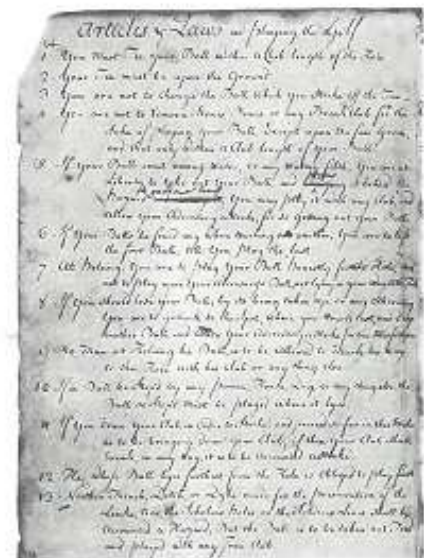 Articles & Laws in playing the Golf
1 You Must Tee your Ball within a Club length of the Hole
2 Your Tee must be upon the Ground
3 You are not to Change the Ball which you Strike off the Tee
4 You are not to Remove Stones, Bones or any Break Club for the
Sake of playing your Ball Except upon the fair Green
and that only within a Club length of your Ball
5 If your Ball come among Water, or any Watery filth, You are at
Liberty to take out your Ball and
you may play it with any Club, and
allow your Adversary a Stroke, for so getting out your Ball
6 If your Balls be found any where touching one another, You are to lift
the first Ball, till you play the last
7 At Holeing, You are to play your Ball honestly for the Hole, and
not to play upon your Adversary's Ball, not lying in your way to the Hole
8 If you should lose your Ball, by its being taken up, or any other way
You are to go back to the Spot, where you struck last, and drop
another Ball, and allow your Adversary a Stroke for the
9 No Man at Holeing his Ball, is to be allowed to mark his way
to the Hole with his Club or any thing else
10 If a Ball be Stop'd by any person, Horse, Dog or any thing else, the
Ball so Stop'd Must be played where it lyes
11 If you draw your Club in Order to Strike, and proceed so far in the Stroke
as to be bringing down your Club, if then your Club shall
break in any way, it is to be accounted a Stroke
12 He whose Ball lyes farthest from the Hole is Obliged to play first
13 Neither Trench, Ditch or Dyke made for the preservation of the
Links, Nor the Scholars Holes or the Soldiers Lines, Shall be
accounted a Hazard, But the Ball is to be taken out Teed
and played with any Iron Club